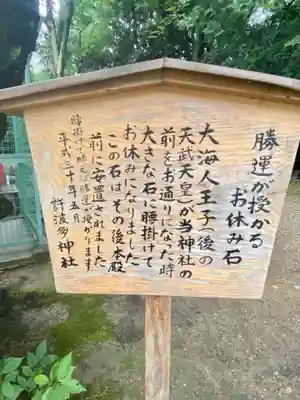 勝運が授かる
お休み石
大海人王子(後の
天武天皇)が当神社の
前をお通りになった時
大きな石に腰掛けて
お休みになりました
この石は、その後本殿
前に安置されました
腰掛けて頂くと勝運が授かります
平成三十年五月
許波多神社